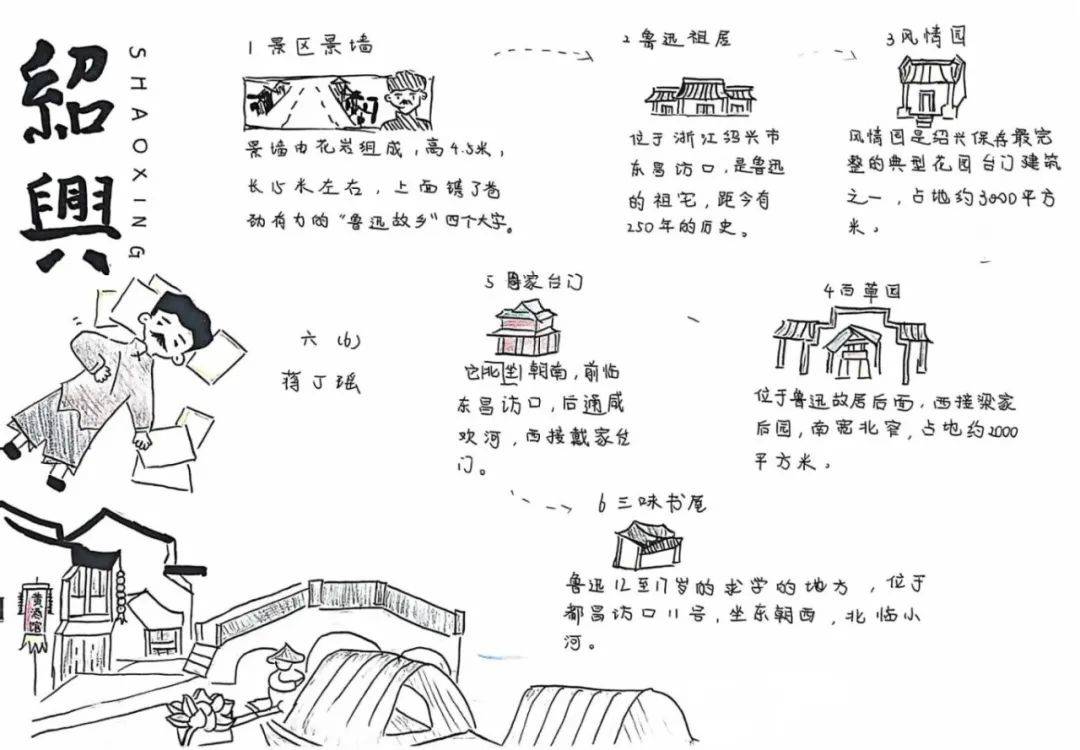 紹興
SHAOXING
1 景区景墙
景墙由花岩组成，高4.5米，
长15米左右，上面镌了苍
劲有力的“鲁迅故乡”四个大字。
2 鲁迅祖屋
位于浙江绍兴市
东昌访口，是鲁迅
的祖宅，距今有
250年的历史。
3 风情园
风情园是绍兴保存最完
整的典型花园台门建筑
之一，占地约3000平方
米。
4 百草园
位于鲁迅故居后面，西接梁家
后园，南宽北窄，占地约2000
平方米。
5 周家台门
它北坐朝南，前临
东昌访口，后通咸
欢河，西接戴家台
门。
6 三味书屋
鲁迅12至17岁的求学的地方，位于
都昌访口11号，坐东朝西，北临小
河。
六（6）
蒋丁瑶
黄酒馆